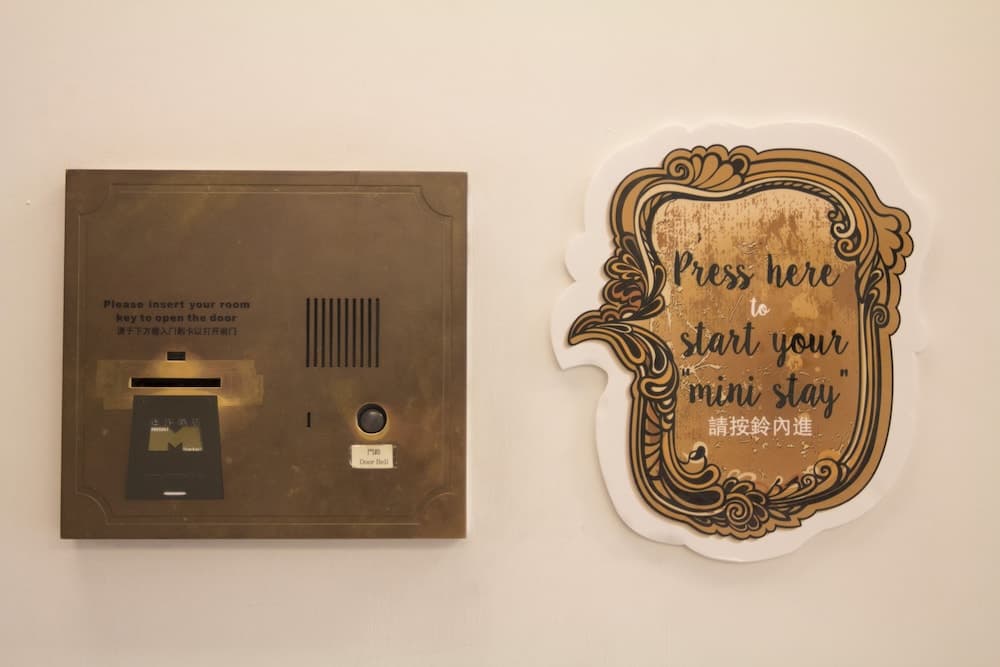 Please insert your room
key to open the door
请于下方插入门匙卡以打开房门
M
門鈴
Door Bell
Press here
to
start your
"mini stay"
請按鈴內進